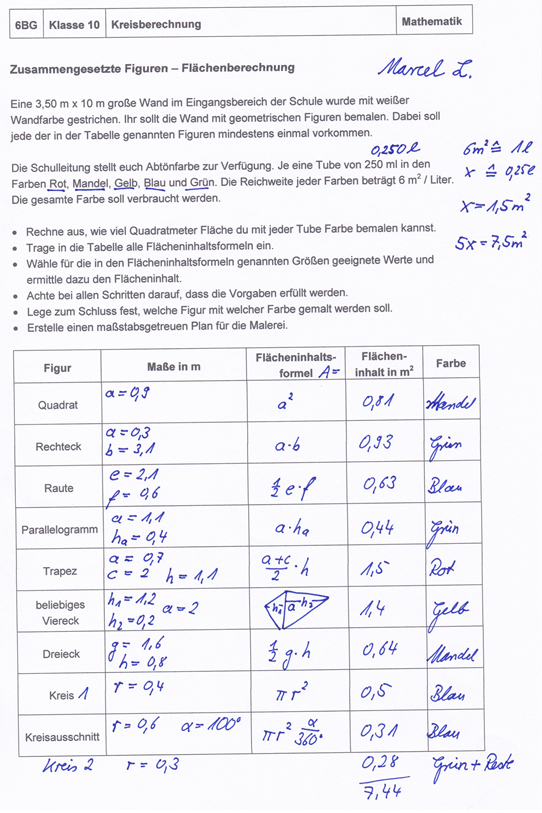 6BG Klasse 10 Kreisberechnung Mathematik
Zusammengesetzte Figuren – Flächenberechnung Marcel L.
Eine 3,50 m x 10 m große Wand im Eingangsbereich der Schule wurde mit weißer
Wandfarbe gestrichen. Ihr sollt die Wand mit geometrischen Figuren bemalen. Dabei soll
jede der in der Tabelle genannten Figuren mindestens einmal vorkommen.
0,250l 6m² ≙ 1l
Die Schulleitung stellt euch Abtönfarbe zur Verfügung. Je eine Tube von 250 ml in den
x ≙ 0,25l
Farben Rot, Mandel, Gelb, Blau und Grün. Die Reichweite jeder Farben beträgt 6 m² / Liter.
Die gesamte Farbe soll verbraucht werden.
x = 1,5m²
• Rechne aus, wie viel Quadratmeter Fläche du mit jeder Tube Farbe bemalen kannst.
5x = 7,5m²
• Trage in die Tabelle alle Flächeninhaltsformeln ein.
• Wähle für die in den Flächeninhaltsformeln genannten Größen geeignete Werte und
ermittle dazu den Flächeninhalt.
• Achte bei allen Schritten darauf, dass die Vorgaben erfüllt werden.
• Lege zum Schluss fest, welche Figur mit welcher Farbe gemalt werden soll.
• Erstelle einen maßstabsgetreuen Plan für die Malerei.
Figur Maße in m Flächeninhalts-formel A= Flächen-inhalt in m² Farbe
Quadrat a = 0,9 a² 0,81 Mandel
Rechteck a = 0,3 b = 3,1 a·b 0,93 Grün
Raute e = 2,1 f = 0,6 ½ e·f 0,63 Blau
Parallelogramm a = 1,1 ha = 0,4 a·ha 0,44 Grün
Trapez a = 0,7 c = 2 h = 1,1 (a+c)/2 · h 1,5 Rot
beliebiges Viereck h1 = 1,2 h2 = 0,2 a = 2 h1 a h2 1,4 Gelb
Dreieck g = 1,6 h = 0,8 ½ g·h 0,64 Mandel
Kreis 1 r = 0,4 πr² 0,5 Blau
Kreisausschnitt r = 0,6 α = 100° πr² α/360° 0,31 Blau
Kreis 2 r = 0,3 0,28 Grün + Reste
7,44